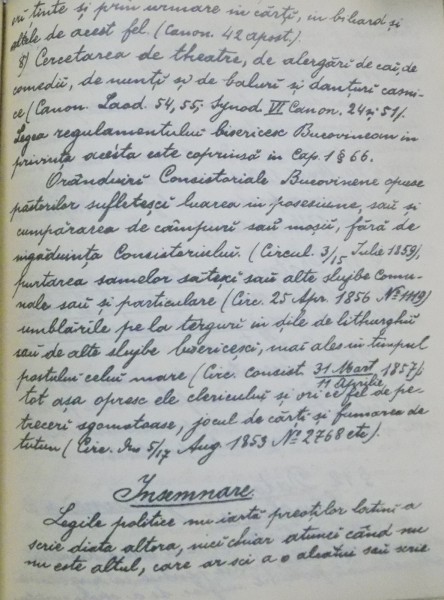 și prin urmare in cărți, in biliard și
altele de acest fel. (Canon. 42 apost.).
8) Cercetarea de theatre, de alergări de cai, de
comedii, de nunți și de baluri și danțuri casni-
ce (Canon. Laod. 54, 55, Synod. VI Canon. 24 și 51/.
Legea regulamentului bisericesc Bucovinean in
privința acésta este coprinsă in Cap. 1 § 66.
Orânduiri Consistoriale Bucovinene opresc
păstorilor sufletești luarea in posesiune, sau și
cumpărarea de câmpuri sau moșii, fără de
ingăduința Consistoriului. (Circul. 3/15 Iulie 1859/,
purtarea samelor sătești sau alte slujbe comu-
nale sau și particulare (Circ. 25 Apr. 1856 № 1119)
umblările pe la terguri in dile de lithurghii
sau de alte slujbe bisericești, mai ales in timpul
postului celui mare (Circ. Consist. 31 Mart/11 Aprilie, 1857/;
tot așa opresc ele clericului și ori ce fel de pe-
treceri sgomotoase, jocul de cărți și fumarea de
tutun (Circ. 5/17 Aug. 1853 № 2768 etc).
Insemnare
Legile politice nu iartă preoților a
scrie diata altora, nici chiar atunci când nu
nu este altul, care ar sci a o sau scrie